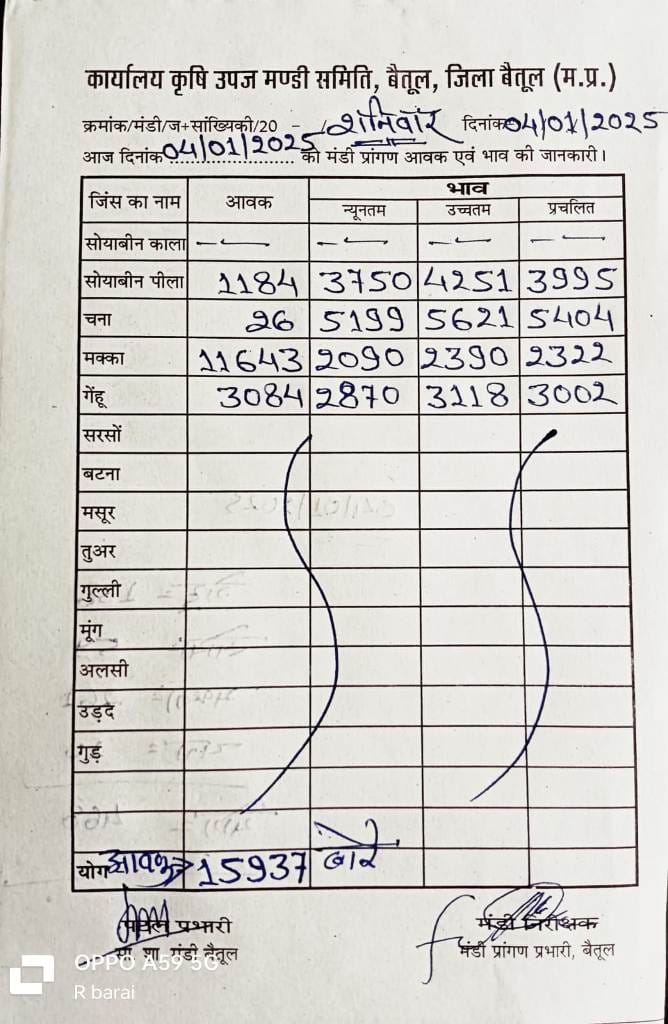 कार्यालय कृषि उपज मण्डी समिति, बैतूल, जिला बैतूल (म.प्र.)
क्रमांक/मंडी/ज+सांख्यिकी/20 - / शनिवार दिनांक 04/01/2025
आज दिनांक 04/01/2025 को मंडी प्रांगण आवक एवं भाव की जानकारी।
जिंस का नाम आवक भाव
न्यूनतम उच्चतम प्रचलित
सोयाबीन काला -- -- -- --
सोयाबीन पीला 1184 3750 4251 3995
चना 26 5199 5621 5404
मक्का 11643 2090 2390 2322
गेंहू 3084 2870 3118 3002
सरसों
बटना
मसूर
तुअर
गुल्ली
मूंग
अलसी
उड़द
गुड़
योग आवक 15937 बोरे
प्रभारी मंडी निरीक्षक
सां. शा. मंडी बैतूल मंडी प्रांगण प्रभारी, बैतूल
OPPO A59 5G
R barai